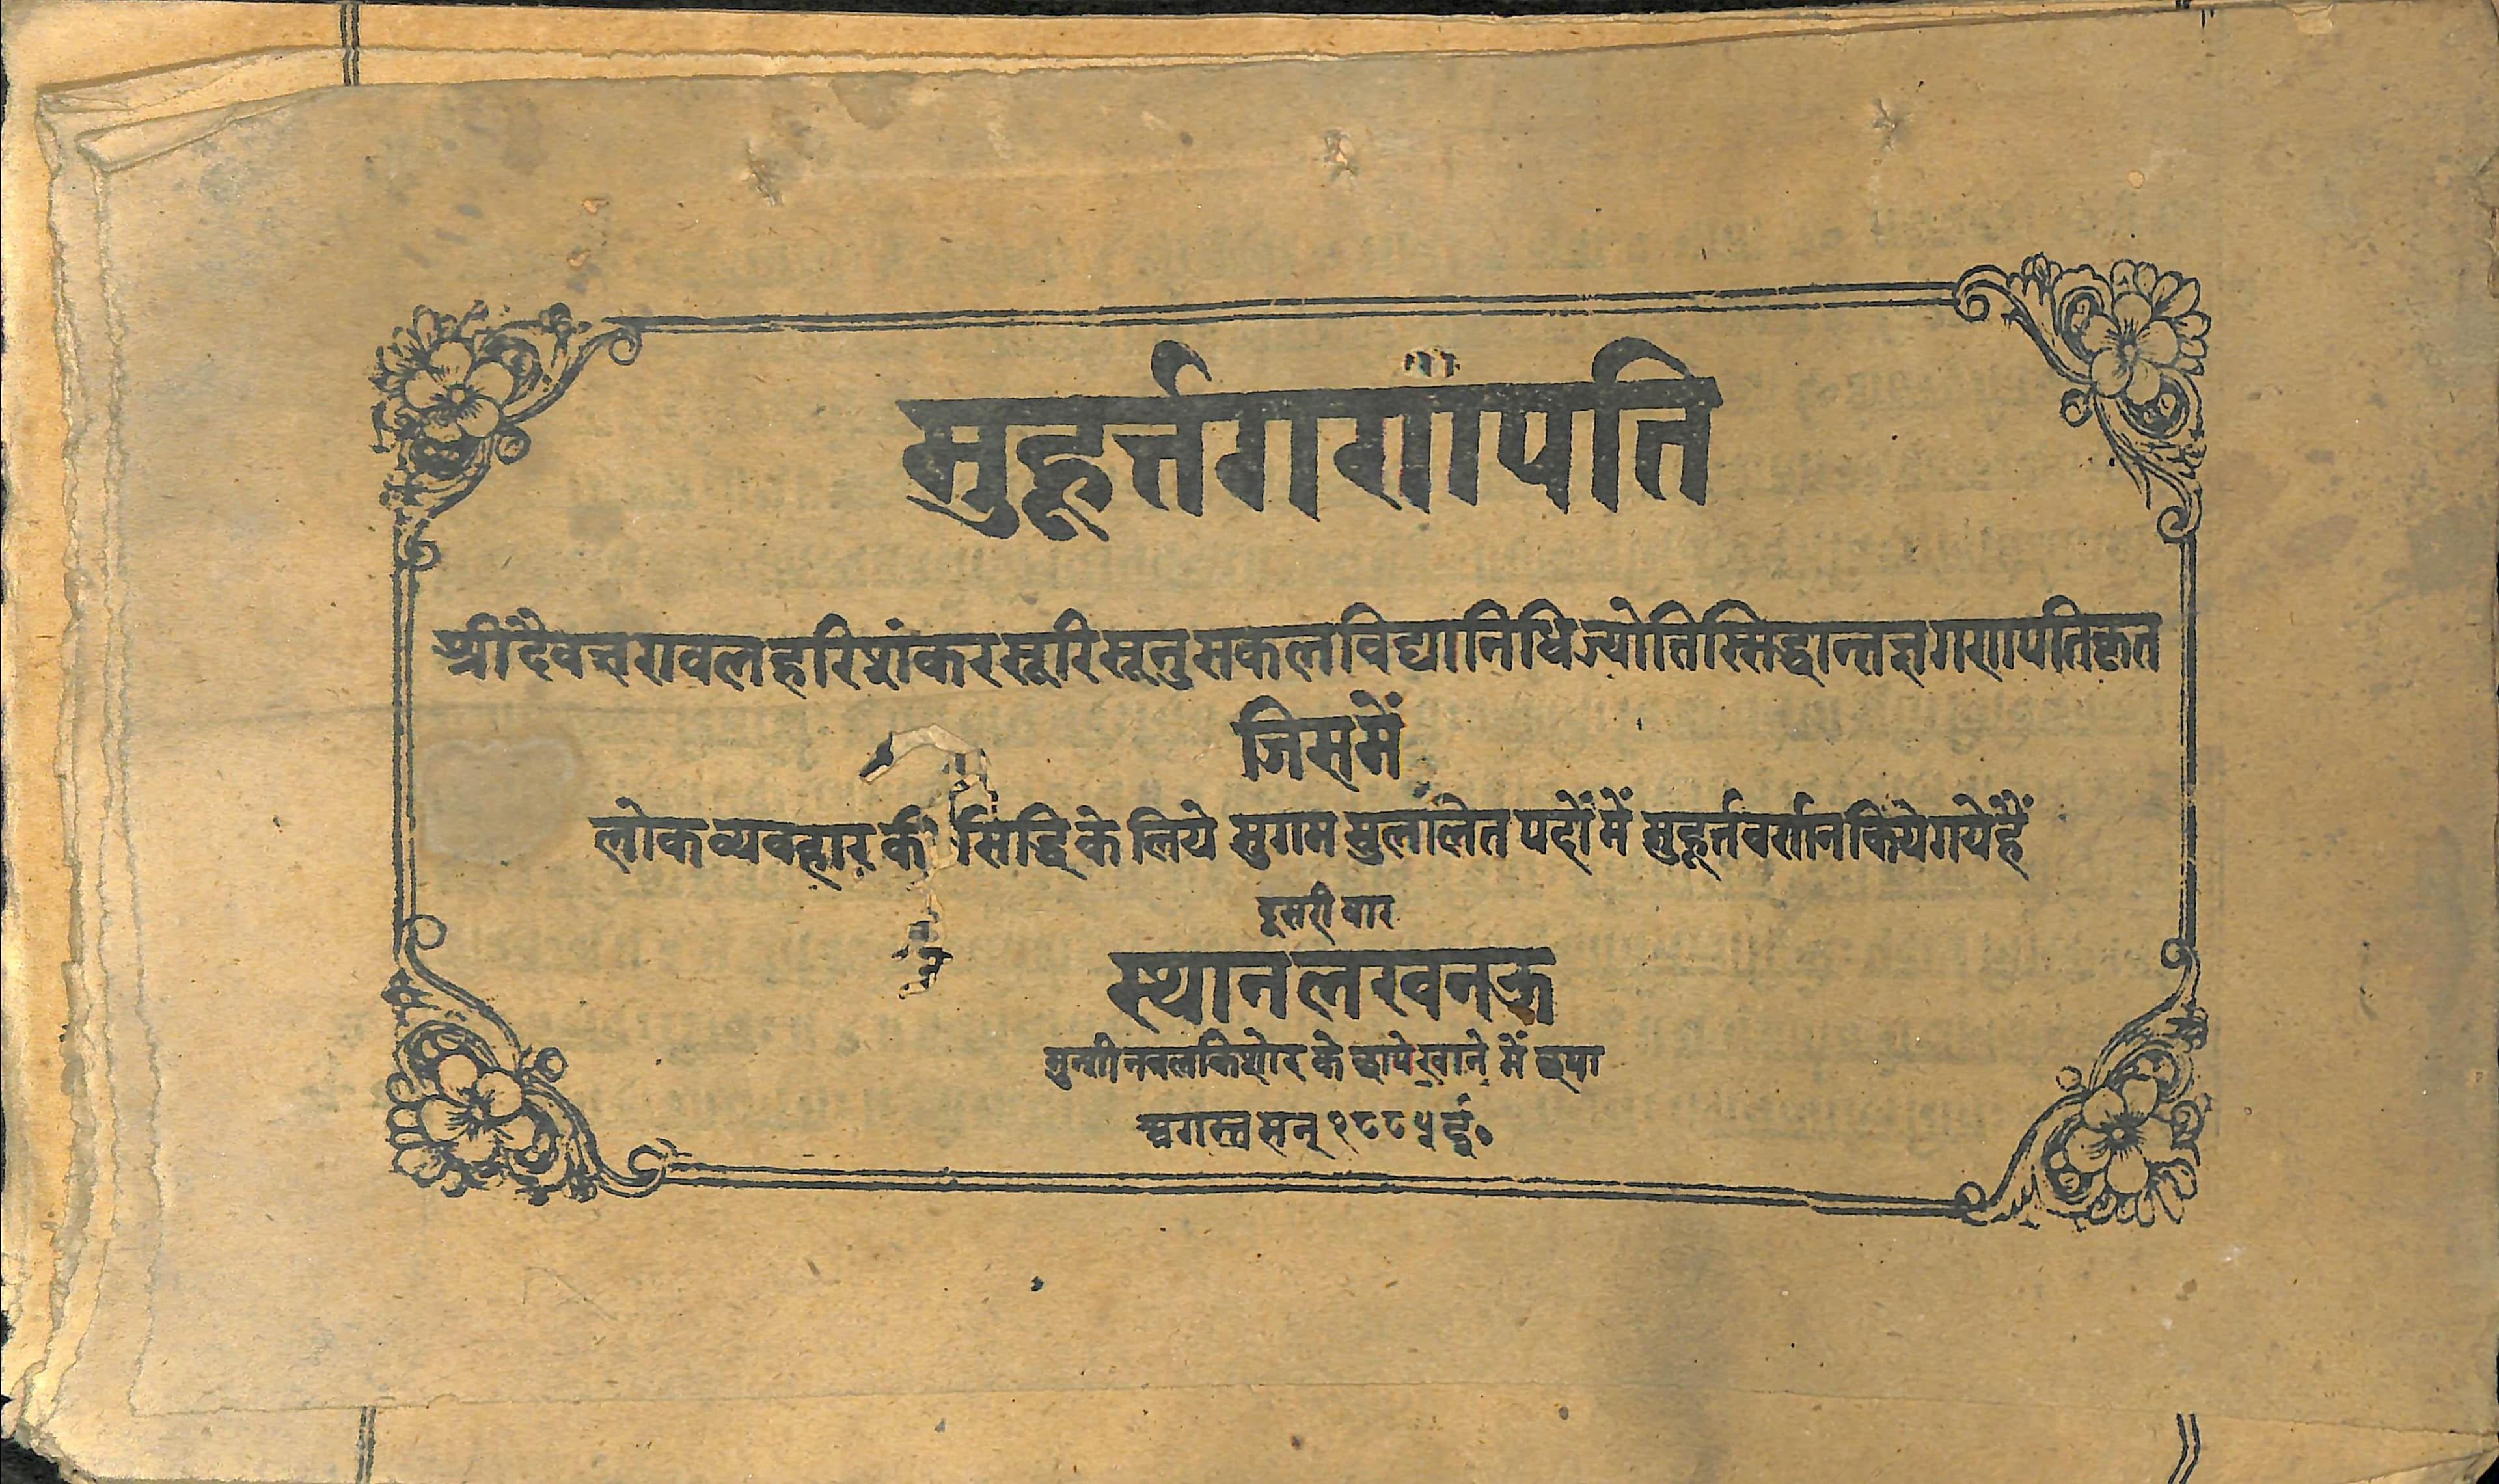 मुहूर्त्तगणपति
श्रीदैवज्ञरावलहरिशंकरसूरिसूनुसकलविद्यानिधिज्योतिस्सिद्धान्तज्ञगणपतिकृत
जिसमें
लोकव्यवहार की सिद्धि के लिये सुगम सुललित पदों में मुहूर्त्तवर्णन किये गये हैं
दूसरी बार
स्थान लखनऊ
मुन्शी नवलकिशोर के छापेखाने में छपा
अगस्त सन् १८८५ ई०